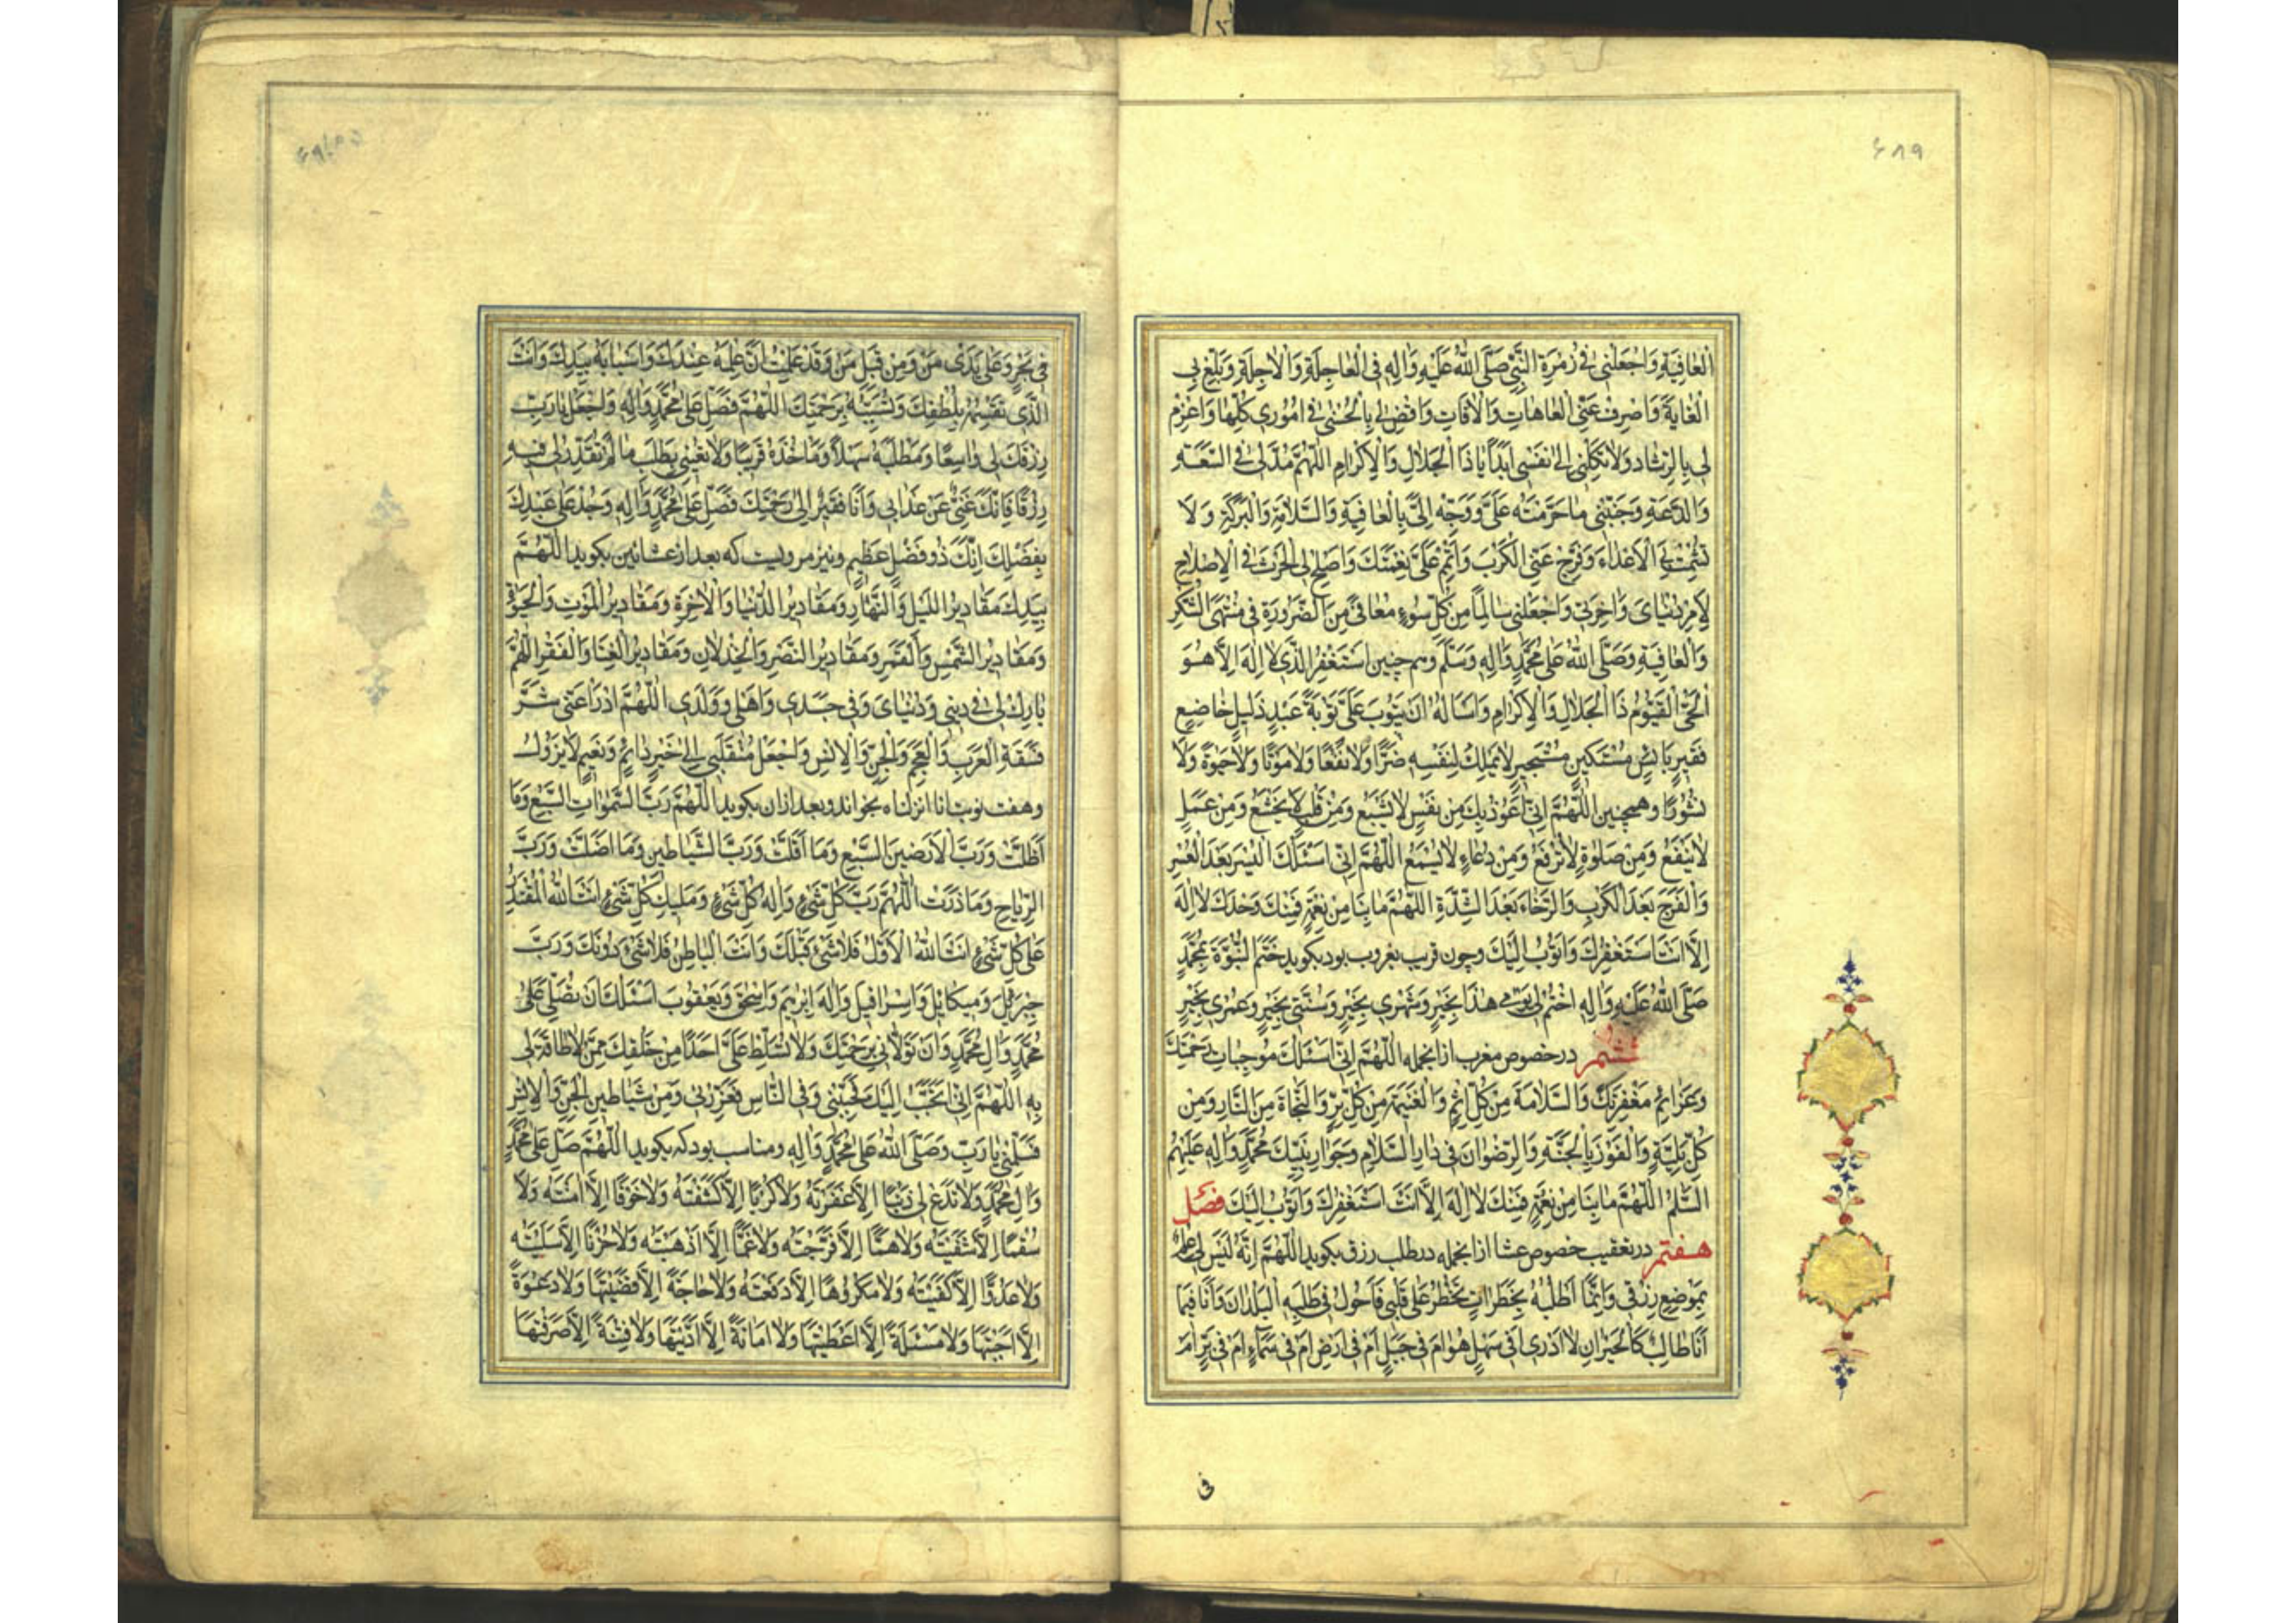 ٤٨٩
الْعافِيَةِ وَاجْعَلْنى فى زُمْرَةِ النَّبِىِّ صَلَّى اللهُ عَلَيْهِ وَالِهِ فِى الْعاجِلَةِ وَالْاجِلَةِ وَبَلِّغْ بِىَ
الْغايَةَ وَاصْرِفْ عَنِّى الْعاهاتِ وَالْافاتِ وَاقْضِ لى بِالْحُسْنى فى اُمُورى كُلِّها وَاعْزِمْ
لى بِالرَّشادِ وَلاتَكِلْنى اِلى نَفْسى اَبَداً ياذَا الْجَلالِ وَالْاِكْرامِ اللّهُمَّ مُدَّ لى فِى السَّعَةِ
وَالدَّعَةِ وَجَنِّبْنى ماحَرَّمْتَهُ عَلَىَّ وَوَجِّهْ اِلَىَّ بِالْعافِيَةِ وَالسَّلامَةِ وَالْبَرَكَةِ وَلا
تُشْمِتْ بِىَ الْاَعْداءَ وَفَرِّجْ عَنِّى الْكَرْبَ وَاَتْمِمْ عَلَىَّ نِعْمَتَكَ وَاَصْلِحْ لِىَ الْحَرْثَ فِى الْاِصْلاحِ
لِاَمْرِ دُنْياىَ وَاخِرَتى وَاجْعَلْنى سالِماً مِنْ كُلِّ سُوءٍ مُعافىً مِنَ الضَّرُورَةِ فى مُنْتَهَى الشُّكْرِ
وَالْعافِيَةِ وَصَلَّى اللهُ عَلى مُحَمَّدٍ وَالِهِ وَسَلَّمَ وهم چنين اَسْتَغْفِرُ الَّذى لا اِلهَ اِلّا هُوَ
الْحَىُّ الْقَيُّومُ ذَا الْجَلالِ وَالْاِكْرامِ وَاَسْاَلُهُ اَنْ يَتُوبَ عَلَىَّ تَوْبَةَ عَبْدٍ ذَليلٍ خاضِعٍ
فَقيرٍ بائِسٍ مُسْتَكينٍ مُسْتَجيرٍ لايَمْلِكُ لِنَفْسِهِ ضَرًّا وَلانَفْعًا وَلامَوْتًا وَلاحَيوةً وَلا
نُشُورًا وهمچنين اللّهُمَّ اِنّى اَعُوذُبِكَ مِنْ نَفْسٍ لاتَشْبَعُ وَمِنْ قَلْبٍ لايَخْشَعُ وَمِنْ عَمَلٍ
لايَنْفَعُ وَمِنْ صَلوةٍ لاتُرْفَعُ وَمِنْ دُعاءٍ لايُسْمَعُ اللّهُمَّ اِنّى اَسْئَلُكَ الْيُسْرَ بَعْدَ الْعُسْرِ
وَالْفَرَجَ بَعْدَ الْكَرْبِ وَالرَّخاءَ بَعْدَ الشِّدَّةِ اللّهُمَّ مابِنا مِنْ نِعْمَةٍ فَمِنْكَ وَحْدَكَ لااِلهَ
اِلّا اَنْتَ اَسْتَغْفِرُكَ وَاَتُوبُ اِلَيْكَ وچون قريب بغروب بود بكويد خَتَمَ النُّبُوَّةَ بِمُحَمَّدٍ
صَلَّى اللهُ عَلَيْهِ وَالِهِ اخْتِمْ لى يَوْمى هذا بِخَيْرٍ وَشَهْرى بِخَيْرٍ وَسَنَتى بِخَيْرٍ وَعُمْرى بِخَيْرٍ
درخصوص مغرب ازانجمله اللّهُمَّ اِنّى اَسْئَلُكَ مُوجِباتِ رَحْمَتِكَ
وَعَزائِمَ مَغْفِرَتِكَ وَالسَّلامَةَ مِنْ كُلِّ اِثْمٍ وَالْغَنيمَةَ مِنْ كُلِّ بِرٍّ وَالنَّجاةَ مِنَ النّارِ وَمِنْ
كُلِّ بَلِيَّةٍ وَالْفَوْزَ بِالْجَنَّةِ وَالرِّضْوانَ فى دارِ السَّلامِ وَجِوارِ نَبِيِّكَ مُحَمَّدٍ وَالِهِ عَلَيْهِمُ
السَّلمُ اللّهُمَّ مابِنا مِنْ نِعْمَةٍ فَمِنْكَ لااِلهَ اِلّا اَنْتَ اَسْتَغْفِرُكَ وَاَتُوبُ اِلَيْكَ فصل
هفتم درتعقيب خصوص عشا ازانجمله درطلب رزق بكويد اللّهُمَّ اِنَّهُ لَيْسَ لى عِلْمٌ
بِمَوْضِعِ رِزْقى وَاِنَّما اَطْلُبُهُ بِخَطَراتٍ تَخْطُرُ عَلى قَلْبى فَاَحُولُ فى طَلَبِهِ الْبُلْدانَ وَاَنَا فيما
اَنَا طالِبٌ كَالْحَيْرانِ لااَدْرى اَفى سَهْلٍ هُوَ اَمْ فى جَبَلٍ اَمْ فى اَرْضٍ اَمْ فى سَماءٍ اَمْ فى بَرٍّ اَمْ
فى
فى بَحْرٍ وَعَلى يَدَىْ مَنْ وَمِنْ قِبَلِ مَنْ وَقَدْ عَلِمْتُ اَنَّ عِلْمَهُ عِنْدَكَ وَاَسْبابَهُ بِيَدِكَ وَاَنْتَ
الَّذى تَقْسِمُهُ بِلُطْفِكَ وَتُسَبِّبُهُ بِرَحْمَتِكَ اللّهُمَّ فَصَلِّ عَلى مُحَمَّدٍ وَالِهِ وَاجْعَلْ يارَبِّ
رِزْقَكَ لى واسِعًا وَمَطْلَبَهُ سَهْلاً وَمَأْخَذَهُ قَريبًا وَلاتُعَنِّنى بِطَلَبِ مالَمْ تُقَدِّرْ لى فيهِ
رِزْقًا فَاِنَّكَ غَنِىٌّ عَنْ عَذابى وَاَنَا فَقيرٌ اِلى رَحْمَتِكَ فَصَلِّ عَلى مُحَمَّدٍ وَالِهِ وَجُدْ عَلى عَبْدِكَ
بِفَضْلِكَ اِنَّكَ ذُوفَضْلٍ عَظيمٍ ونيز مرويست كه بعد ازعشائين بكويد اللّهُمَّ
بِيَدِكَ مَقاديرُ اللَّيْلِ وَالنَّهارِ وَمَقاديرُ الدُّنْيا وَالْاخِرَةِ وَمَقاديرُ الْمَوْتِ وَالْحَيوةِ
وَمَقاديرُ الشَّمْسِ وَالْقَمَرِ وَمَقاديرُ النَّصْرِ وَالْخِذْلانِ وَمَقاديرُ الْغِنا وَالْفَقْرِ اللّهُمَّ
بارِكْ لى فى دينى وَدُنْياىَ وَفى جَسَدى وَاَهْلى وَوَلَدى اللّهُمَّ ادْرَأْ عَنّى شَرَّ
فَسَقَةِ الْعَرَبِ وَالْعَجَمِ وَالْجِنِّ وَالْاِنْسِ وَاجْعَلْ مُنْقَلَبى اِلى خَيْرٍ دائِمٍ وَنَعيمٍ لايَزُولُ
وهفت نوبت انا انزلناه بخواند وبعدازان بكويد اللّهُمَّ رَبَّ السَّمواتِ السَّبْعِ وَما
اَظَلَّتْ وَرَبَّ الْاَرَضينَ السَّبْعِ وَما اَقَلَّتْ وَرَبَّ الشَّياطينِ وَما اَضَلَّتْ وَرَبَّ
الرِّياحِ وَماذَرَتْ اللّهُمَّ رَبَّ كُلِّ شَىْءٍ وَاِلهَ كُلِّ شَىْءٍ وَمَليكَ كُلِّ شَىْءٍ اَنْتَ اللهُ الْمُقْتَدِرُ
عَلى كُلِّ شَىْءٍ اَنْتَ اللهُ الْاَوَّلُ فَلاشَىْءَ قَبْلَكَ وَاَنْتَ الْباطِنُ فَلاشَىْءَ دُونَكَ وَرَبَّ
جِبْرَئيلَ وَميكائيلَ وَاِسْرافيلَ وَاِلهَ اِبْرهيمَ وَاِسْحقَ وَيَعْقُوبَ اَسْئَلُكَ اَنْ تُصَلِّىَ عَلى
مُحَمَّدٍ وَالِ مُحَمَّدٍ وَاَنْ تَوَلّانى بِرَحْمَتِكَ وَلاتُسَلِّطَ عَلَىَّ اَحَدًا مِنْ خَلْقِكَ مِمَّنْ لاطاقَةَ لى
بِهِ اللّهُمَّ اِنّى اَتَحَبَّبُ اِلَيْكَ فَحَبِّبْنى وَفِى النّاسِ فَعَزِّزْنى وَمِنْ شَياطينِ الْجِنِّ وَالْاِنْسِ
فَسَلِّمْنى يارَبِّ وَصَلَّى اللهُ عَلى مُحَمَّدٍ وَالِهِ ومناسب بودكه بكويد اللّهُمَّ صَلِّ عَلى مُحَمَّدٍ
وَالِ مُحَمَّدٍ وَلاتَدَعْ لى ذَنْبًا اِلّا غَفَرْتَهُ وَلاكَرْبًا اِلّا كَشَفْتَهُ وَلاخَوْفًا اِلّا امَنْتَهُ وَلا
سُقْمًا اِلّا شَفَيْتَهُ وَلاهَمًّا اِلّا فَرَّجْتَهُ وَلاغَمًّا اِلّا اَذْهَبْتَهُ وَلاحُزْنًا اِلّا سَلَّيْتَهُ
وَلاعَدُوًّا اِلّا كَفَيْتَهُ وَلامَكْرُوهًا اِلّا دَفَعْتَهُ وَلاحاجَةً اِلّا قَضَيْتَها وَلادَعْوَةً
اِلّا اَجَبْتَها وَلامَسْئَلَةً اِلّا اَعْطَيْتَها وَلااَمانَةً اِلّا اَدَّيْتَها وَلافِتْنَةً اِلّا صَرَفْتَها